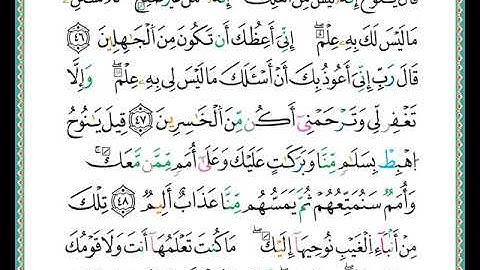 مَا لَيْسَ لَكَ بِهِۦ عِلْمٌ ۖ إِنِّىٓ أَعِظُكَ أَن تَكُونَ مِنَ ٱلْجَـٰهِلِينَ ٤٦
قَالَ رَبِّ إِنِّىٓ أَعُوذُ بِكَ أَنْ أَسْـَٔلَكَ مَا لَيْسَ لِى بِهِۦ عِلْمٌ ۖ وَإِلَّا
تَغْفِرْ لِى وَتَرْحَمْنِىٓ أَكُن مِّنَ ٱلْخَـٰسِرِينَ ٤٧ قِيلَ يَـٰنُوحُ
ٱهْبِطْ بِسَلَـٰمٍ مِّنَّا وَبَرَكَـٰتٍ عَلَيْكَ وَعَلَىٰٓ أُمَمٍ مِّمَّن مَّعَكَ ۚ
وَأُمَمٌ سَنُمَتِّعُهُمْ ثُمَّ يَمَسُّهُم مِّنَّا عَذَابٌ أَلِيمٌ ٤٨ تِلْكَ
مِنْ أَنۢبَآءِ ٱلْغَيْبِ نُوحِيهَآ إِلَيْكَ ۖ مَا كُنتَ تَعْلَمُهَآ أَنتَ وَلَا قَوْمُكَ